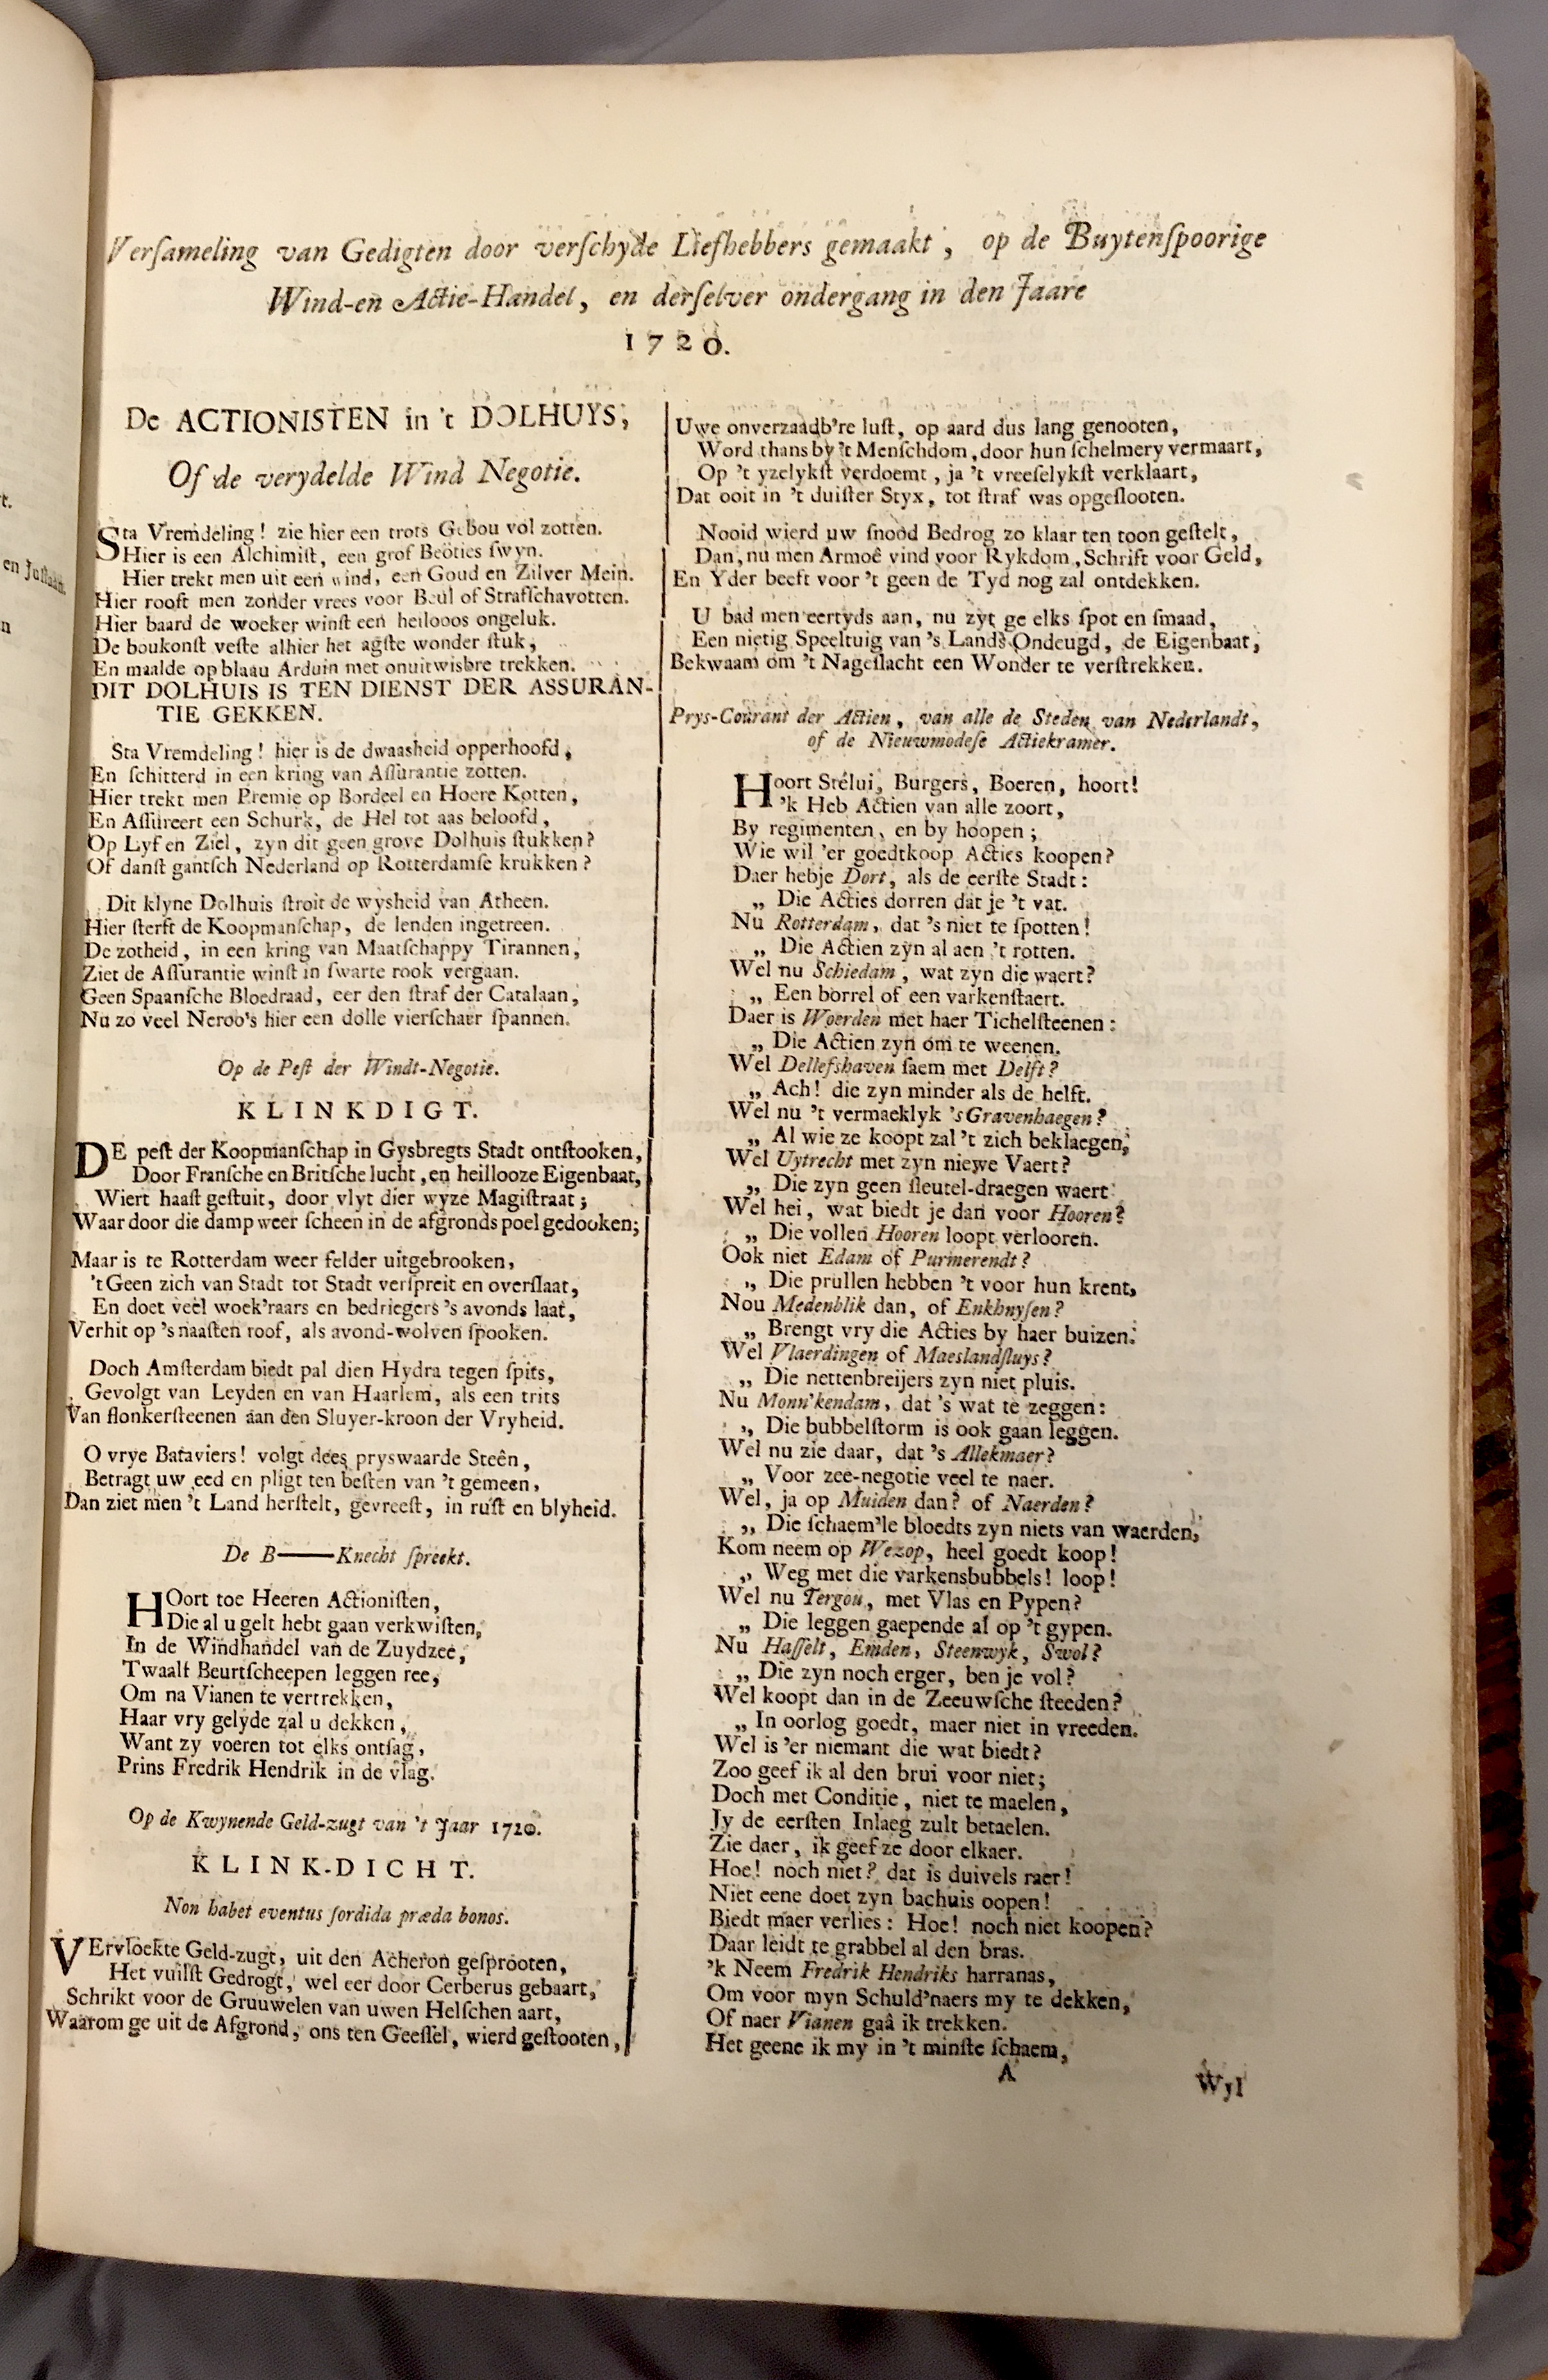 t.
en Jostaan,
n
Versameling van Gedigten door verschyde Liefhebbers gemaakt, op de Buytenspoorige
Wind-en Actie-Handel, en derselver ondergang in den Jaare
1720.
De ACTIONISTEN in 't DOLHUYS,
Of de verydelde Wind Negotie.
Sta Vremdeling! zie hier een trots Gebou vol zotten.
Hier is een Alchimist, een grof Beöties swyn.
Hier trekt men uit een wind, een Goud en Zilver Mein.
Hier roost men zonder vrees voor Beul of Strafschavotten.
Hier baard de woeker winst een heilooos ongeluk.
De boukonst veste alhier het agste wonder stuk,
En maalde op blaau Arduin met onuitwisbre trekken.
DIT DOLHUIS IS TEN DIENST DER ASSURAN-
TIE GEKKEN.
Sta Vremdeling! hier is de dwaasheid opperhoofd,
En schitterd in een kring van Assurantie zotten.
Hier trekt men Premie op Bordeel en Hoere Kotten,
En Assureert een Schurk, de Hel tot aas beloofd,
Op Lyf en Ziel, zyn dit geen grove Dolhuis stukken?
Of danst gantsch Nederland op Rotterdamse krukken?
Dit klyne Dolhuis stroit de wysheid van Atheen.
Hier sterft de Koopmanschap, de lenden ingetreen.
De zotheid, in een kring van Maatschappy Tirannen,
Ziet de Assurantie winst in swarte rook vergaan.
Geen Spaansche Bloedraad, eer den straf der Catalaan,
Nu zo veel Neroo's hier een dolle vierschaer spannen.
Op de Pest der Windt-Negotie.
KLINKDIGT.
DE pest der Koopmanschap in Gysbregts Stadt ontstooken,
Door Fransche en Britsche lucht, en heillooze Eigenbaat,
Wiert haast gestuit, door vlyt dier wyze Magistraat;
Waar door die damp weer scheen in de afgronds poel gedooken;
Maar is te Rotterdam weer felder uitgebrooken,
't Geen zich van Stadt tot Stadt verspreit en overslaat,
En doet veel woek'raars en bedriegers 's avonds laat,
Verhit op 's naasten roof, als avond-wolven spooken.
Doch Amsterdam biedt pal dien Hydra tegen spits,
Gevolgt van Leyden en van Haarlem, als een trits
Van flonkersteenen aan den Sluyer-kroon der Vryheid.
O vrye Bataviers! volgt dees pryswaarde Steên,
Betragt uw eed en pligt ten besten van 't gemeen,
Dan ziet men 't Land herstelt, gevreest, in rust en blyheid.
De B——Knecht spreekt.
HOort toe Heeren Actionisten,
Die al u gelt hebt gaan verkwisten,
In de Windhandel van de Zuydzee,
Twaalf Beurtscheepen leggen ree,
Om na Vianen te vertrekken,
Haar vry gelyde zal u dekken,
Want zy voeren tot elks ontsag,
Prins Fredrik Hendrik in de vlag.
Op de Kwynende Geld-zugt van 't Jaar 1720.
KLINK-DICHT.
Non habet eventus sordida præda bonos.
VErvloekte Geld-zugt, uit den Acheron gesprooten,
Het vuilst Gedrogt, wel eer door Cerberus gebaart,
Schrikt voor de Gruuwelen van uwen Helschen aart,
Waarom ge uit de Afgrond, ons ten Geessel, wierd gestooten,
Uwe onverzaadb're lust, op aard dus lang genooten,
Word thans by 't Menschdom, door hun schelmery vermaart,
Op 't yzelykst verdoemt, ja 't vreeselykst verklaart,
Dat ooit in 't duister Styx, tot straf was opgeslooten.
Nooid wierd uw snood Bedrog zo klaar ten toon gestelt,
Dan, nu men Armoê vind voor Rykdom, Schrift voor Geld,
En Yder beeft voor 't geen de Tyd nog zal ontdekken.
U bad men eertyds aan, nu zyt ge elks spot en smaad,
Een nietig Speeltuig van 's Lands Ondeugd, de Eigenbaat,
Bekwaam om 't Nageslacht een Wonder te verstrekken.
Prys-Courant der Actien, van alle de Steden van Nederlandt,
of de Nieuwmodese Actiekramer.
Hoort Stélui, Burgers, Boeren, hoort!
'k Heb Actien van alle zoort,
By regimenten, en by hoopen;
Wie wil 'er goedtkoop Acties koopen?
Daer hebje Dort, als de eerste Stadt:
„ Die Acties dorren dat je 't vat.
Nu Rotterdam, dat 's niet te spotten!
„ Die Actien zyn al aen 't rotten.
Wel nu Schiedam, wat zyn die waert?
„ Een borrel of een varkenstaert.
Daer is Woerden met haer Tichelsteenen:
„ Die Actien zyn om te weenen.
Wel Dellefshaven saem met Delft?
„ Ach! die zyn minder als de helft.
Wel nu 't vermaeklyk 's Gravenhaegen?
„ Al wie ze koopt zal 't zich beklaegen,
Wel Uytrecht met zyn niewe Vaert?
„ Die zyn geen sleutel-draegen waert
Wel hei, wat biedt je dan voor Hooren?
„ Die vollen Hooren loopt verlooren.
Ook niet Edam of Purmerendt?
„ Die prullen hebben 't voor hun krent,
Nou Medenblik dan, of Enkhuysen?
„ Brengt vry die Acties by haer buizen.
Wel Vlaerdingen of Maeslandsluys?
„ Die nettenbreijers zyn niet pluis.
Nu Monn'kendam, dat 's wat te zeggen:
„ Die bubbelstorm is ook gaan leggen.
Wel nu zie daar, dat 's Allekmaer?
„ Voor zee-negotie veel te naer.
Wel, ja op Muiden dan? of Naerden?
„ Die schaem'le bloedts zyn niets van waerden,
Kom neem op Wezop, heel goedt koop!
„ Weg met die varkensbubbels! loop!
Wel nu Tergou, met Vlas en Pypen?
„ Die leggen gaepende al op 't gypen.
Nu Hasselt, Emden, Steenwyk, Swol?
„ Die zyn noch erger, ben je vol?
Wel koopt dan in de Zeeuwsche steeden?
„ In oorlog goedt, maer niet in vreeden.
Wel is 'er niemant die wat biedt?
Zoo geef ik al den brui voor niet;
Doch met Conditie, niet te maelen,
Jy de eersten Inlaeg zult betaelen.
Zie daer, ik geef ze door elkaer.
Hoe! noch niet? dat is duivels raer!
Niet eene doet zyn bachuis oopen!
Biedt maer verlies: Hoe! noch niet koopen?
Daar leidt te grabbel al den bras.
'k Neem Fredrik Hendriks harranas,
Om voor myn Schuld'naers my te dekken,
Of naer Vianen gaâ ik trekken.
Het geene ik my in 't minste schaem,
A
Wyl